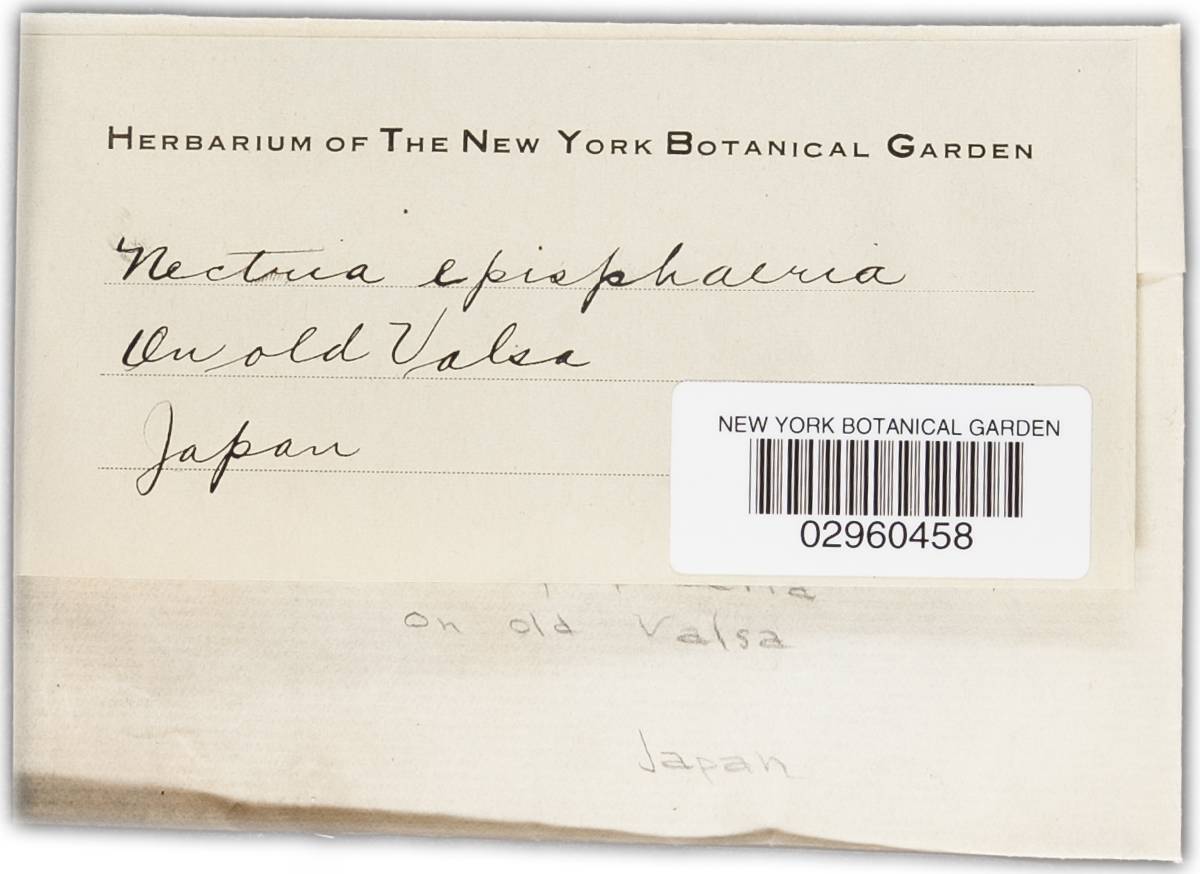 HERBARIUM OF THE NEW YORK BOTANICAL GARDEN
Nectria episphaeria
On old Valsa
Japan
NEW YORK BOTANICAL GARDEN
02960458
on old Valsa
Japan